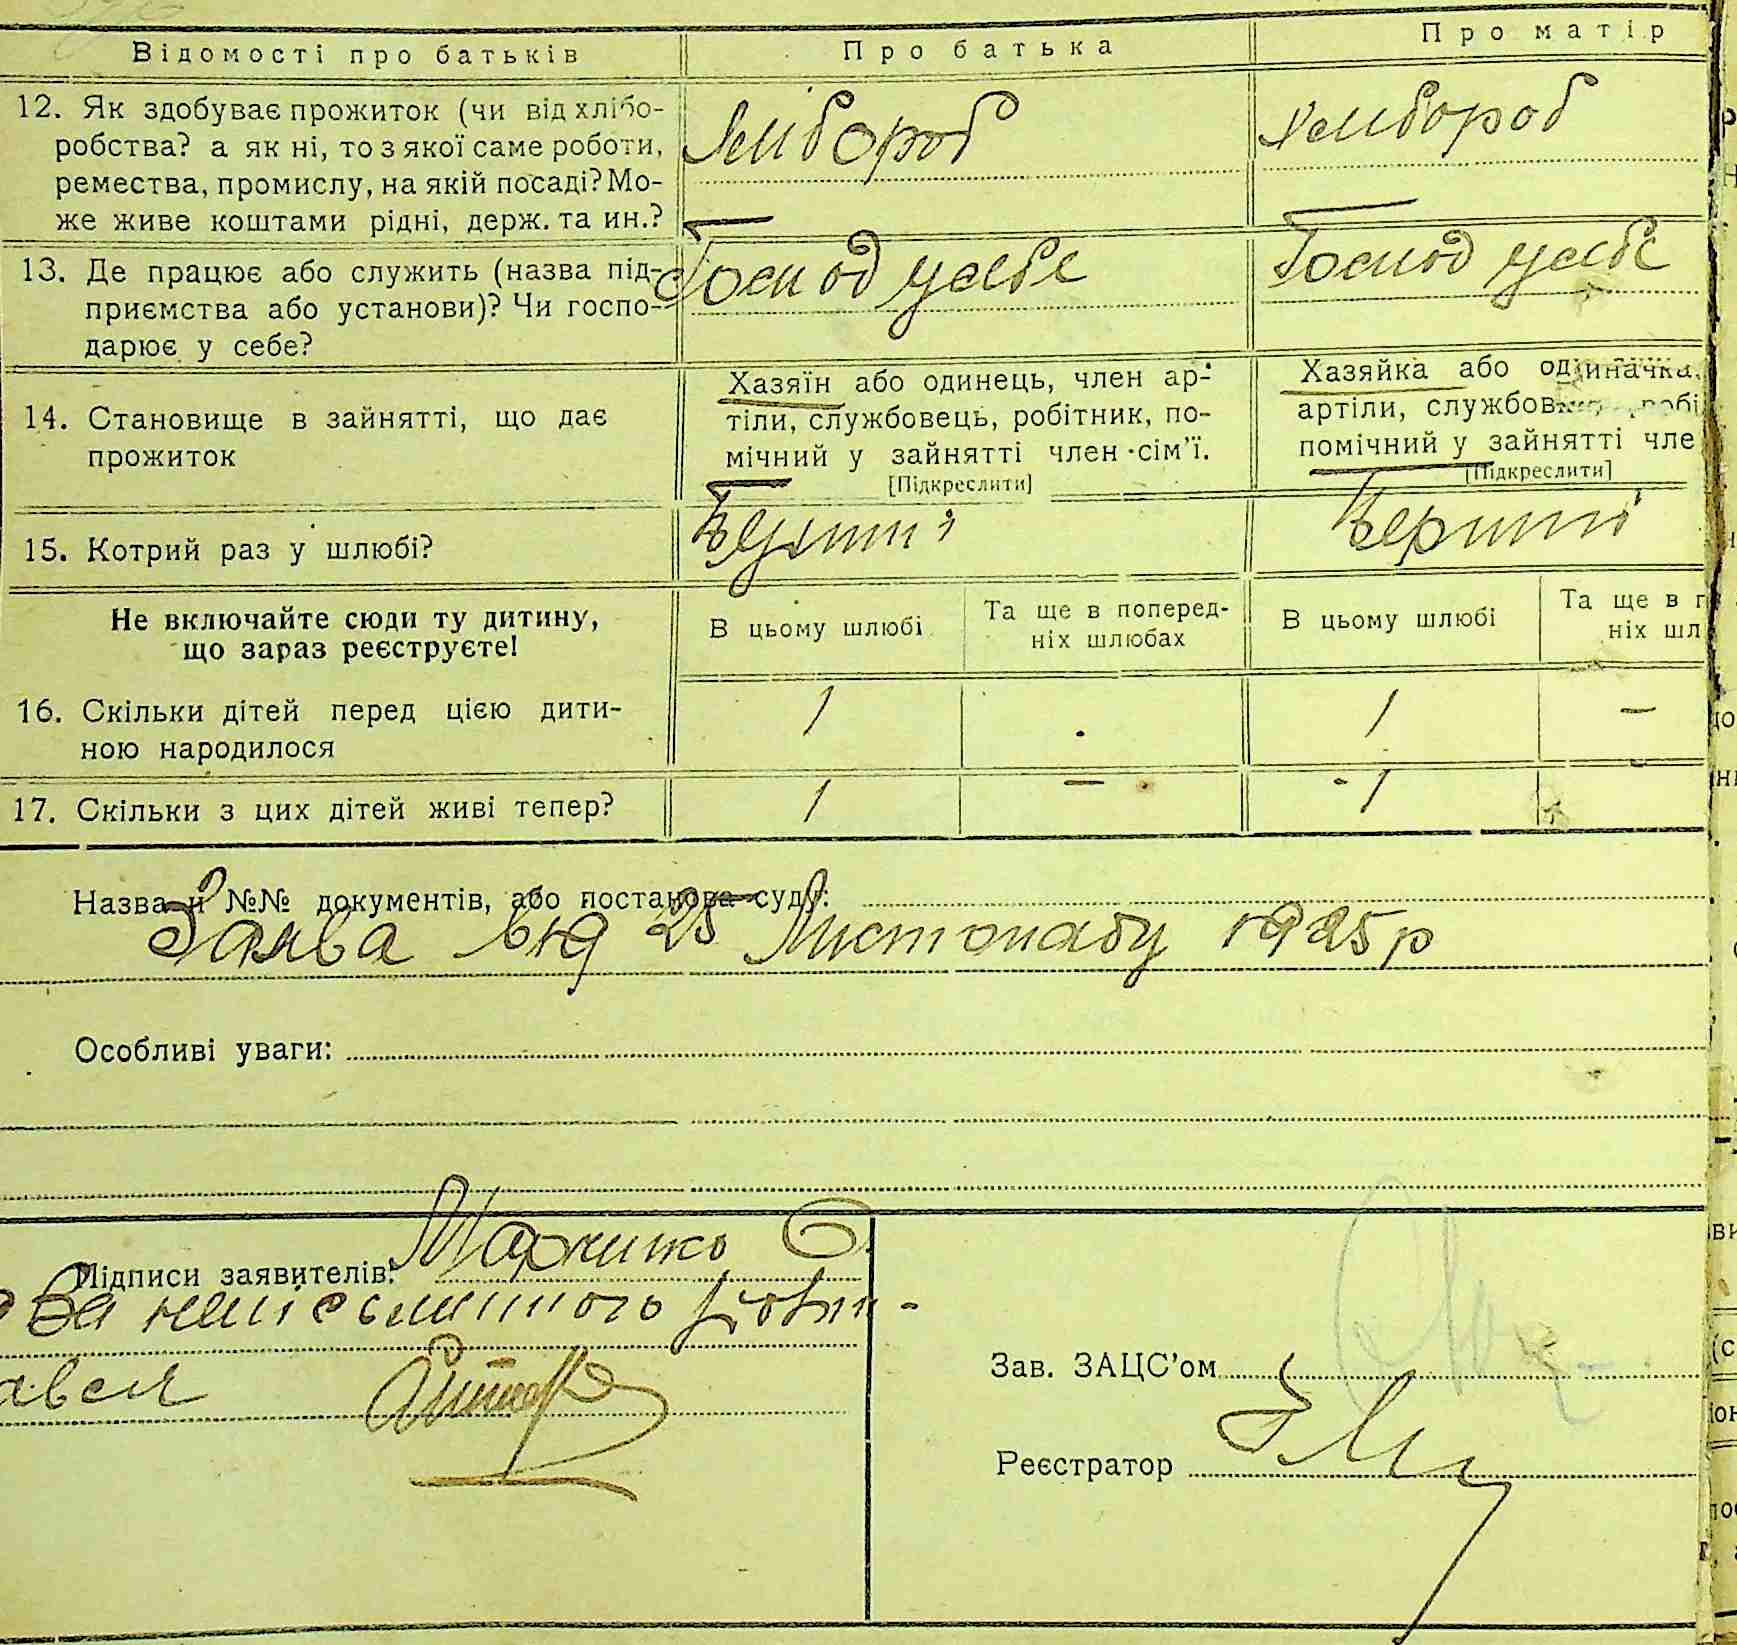 Відомості про батьків
Про батька
Про матір
12. Як здобуває прожиток (чи від хлібо-
робства? а як ні, то з якої саме роботи,
ремества, промислу, на якій посаді? Мо-
же живе коштами рідні, держ. та ин.?
Хлибороб
Хлибороб
13. Де працює або служить (назва під-
приємства або установи)? Чи госпо-
дарює у себе?
Господ у себе
Господ у себе
14. Становище в зайнятті, що дає
прожиток
Хазяїн або одинець, член ар-
тіли, службовець, робітник, по-
мічний у зайнятті член сім’ї.
[Підкреслити]
Хазяйка або одиначка,
артіли, службов робі
помічний у зайнятті чле
[Підкреслити]
15. Котрий раз у шлюбі?
Перший
Перший
Не включайте сюди ту дитину,
що зараз реєструєте!
В цьому шлюбі
Та ще в поперед-
ніх шлюбах
В цьому шлюбі
Та ще в п
ніх шл
16. Скільки дітей перед цією дити-
ною народилося
1
1
–
17. Скільки з цих дітей живі тепер?
1
–
1
Назва й №№ документів, або постанова суду:
Заява від 25 Листопаду 1925 р
Особливі уваги:
Підписи заявителів:
За неписьменного
Зав. ЗАЦС’ом
Реєстратор